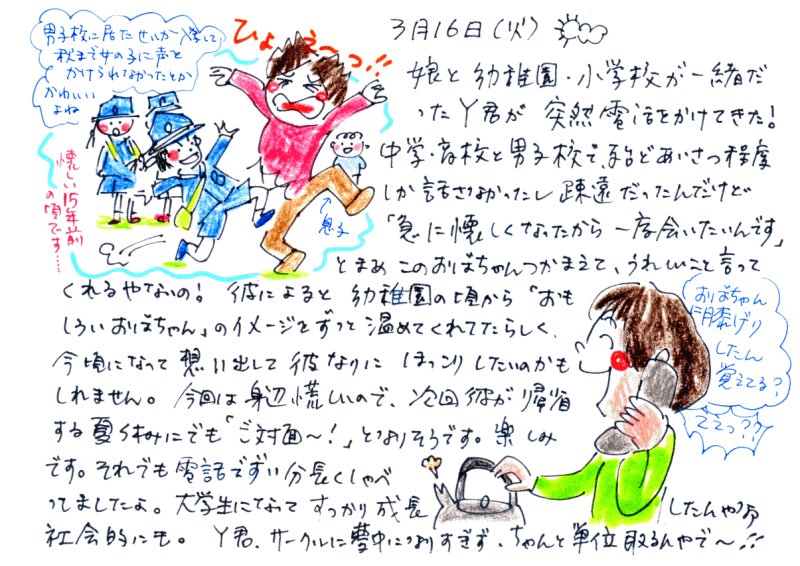 3月16日(火)
男子校に居たせいか入学して
秋まで女の子に声を
かけられなかったとか
かわいい
よね
ひょえ〜っ!!
懐しい15年前
の頃です……
息子
娘と幼稚園・小学校が一緒だ
ったY君が突然電話をかけてきた!
中学・高校と男子校で、あいさつ程度
しか話さなかったし疎遠だったんだけど
「急に懐しくなったから一度会いたいんです」
とまぁこのおばちゃんつかまえて、うれしいこと言って
くれるやないの! 彼によると幼稚園の頃から「おも
しろいおばちゃん」のイメージをずっと温めてくれてたらしく、
今頃になって想い出して彼なりにほっこりしたいのかも
しれません。今回は身辺慌しいので、次回彼が帰省
する夏休みにでも「ご対面〜!」となりそうです。楽しみ
です。それでも電話でずい分長くしゃべ
ってましたよ。大学生になってすっかり成長
したんやな
社会的にも。Y君、サークルに夢中になりすぎず、ちゃんと単位取るんやで〜!!
おばちゃん
膝げり
したん
覚えてる?
ええっ??